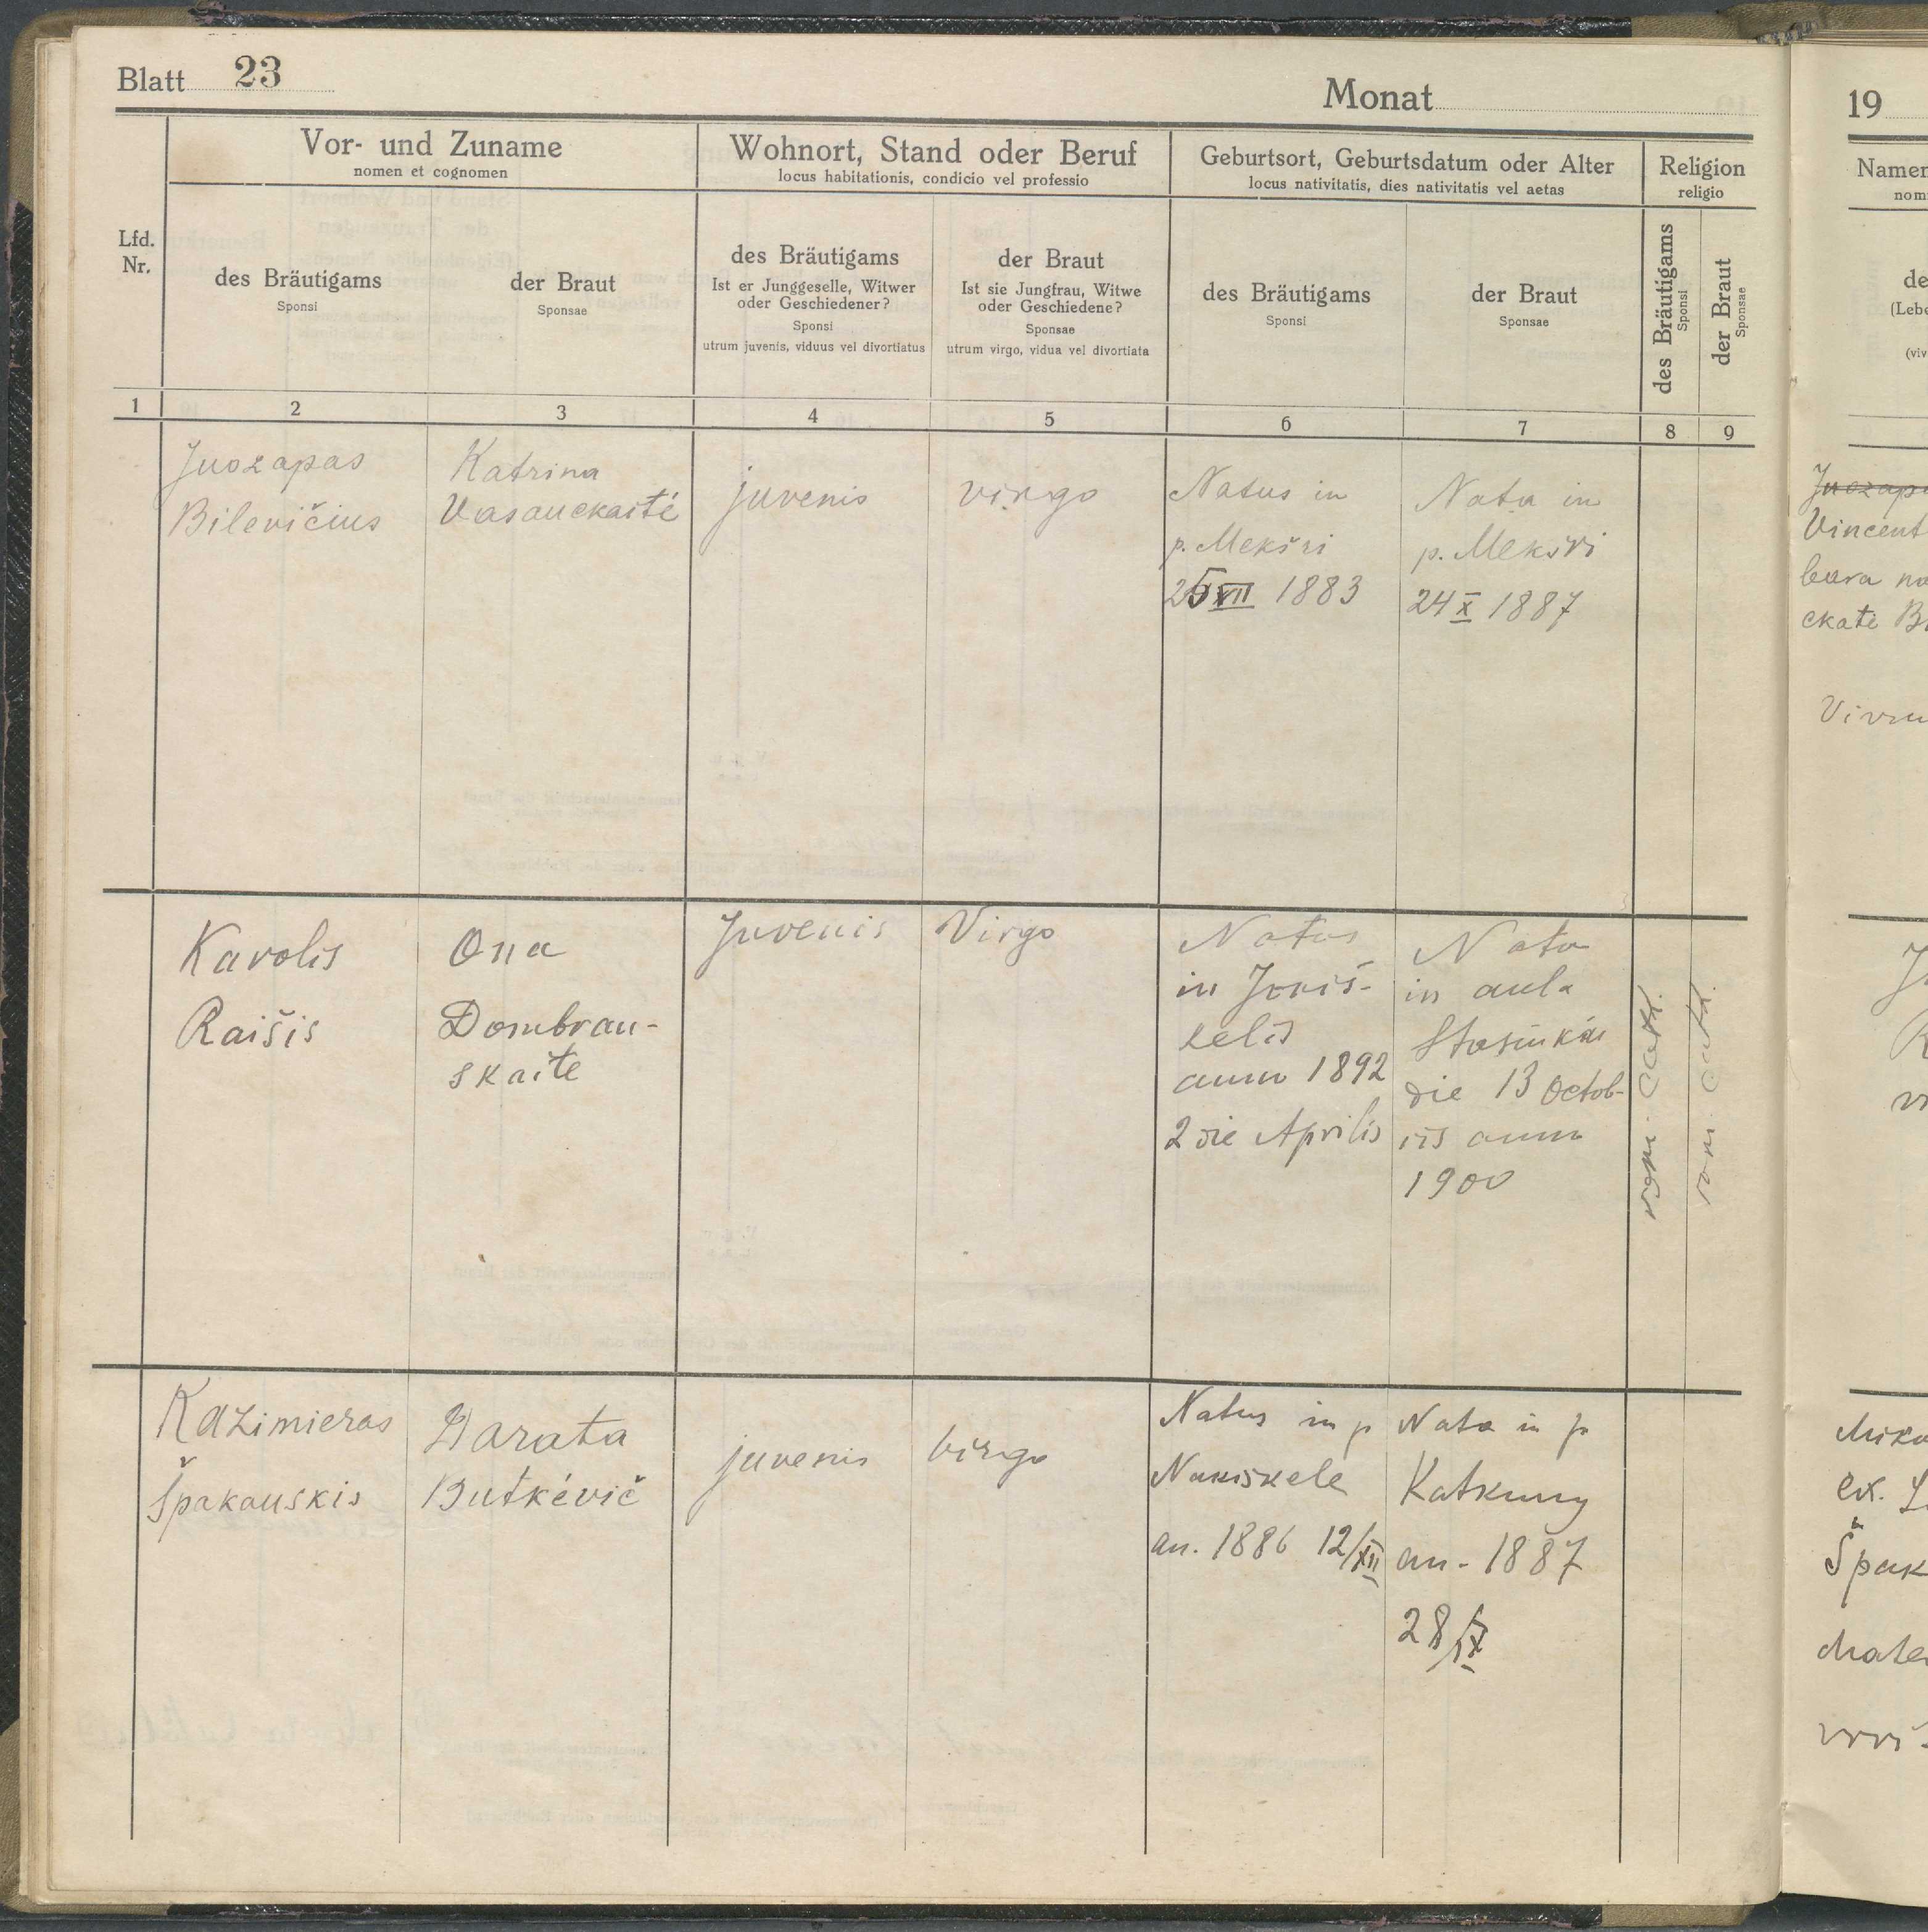 Blatt 23
Monat
Vor- und Zuname
nomen et cognomen
Wohnort, Stand oder Beruf
locus habitationis, condicio vel professio
Geburtsort, Geburtsdatum oder Alter
locus nativitatis, dies nativitatis vel aetas
Religion
religio
Lfd.
Nr.
des Bräutigams
Sponsi
der Braut
Sponsae
des Bräutigams
Ist er Junggeselle, Witwer
oder Geschiedener?
Sponsi
utrum juvenis, viduus vel divortiatus
der Braut
Ist sie Jungfrau, Witwe
oder Geschiedene?
Sponsae
utrum virgo, vidua vel divortiata
des Bräutigams
Sponsi
der Braut
Sponsae
des Bräutigams
Sponsi
der Braut
Sponsae
1 2 3 4 5 6 7 8 9
Juozapas
Bilevičius
Katrina
Vasauckaitė
juvenis
virgo
Natus in
p. Mekšri
25 VII 1883
Nata in
p. Mekšri
24 X 1887
Karolis
Raišis
Ona
Dombrau-
skaite
Juvenis
Virgo
Natus
in Joniš-
kelis
anno 1892
2 die Aprilis
Nata
in aula
die 13 Octob-
ris anno
1900
rom. cath.
rom. cath.
Kazimieras
Špakauskis
Darata
Butkévič
juvenis
virgo
Natus in p
Nakiskele
an. 1886 12/XII
Nata in p
Katkuny
an - 1887
28/IX
19
Namen
nom
de
(Lebe
(viv
Juozap
Vincent
bara na
ckate B
Mika
ex. L
Špak
Mate